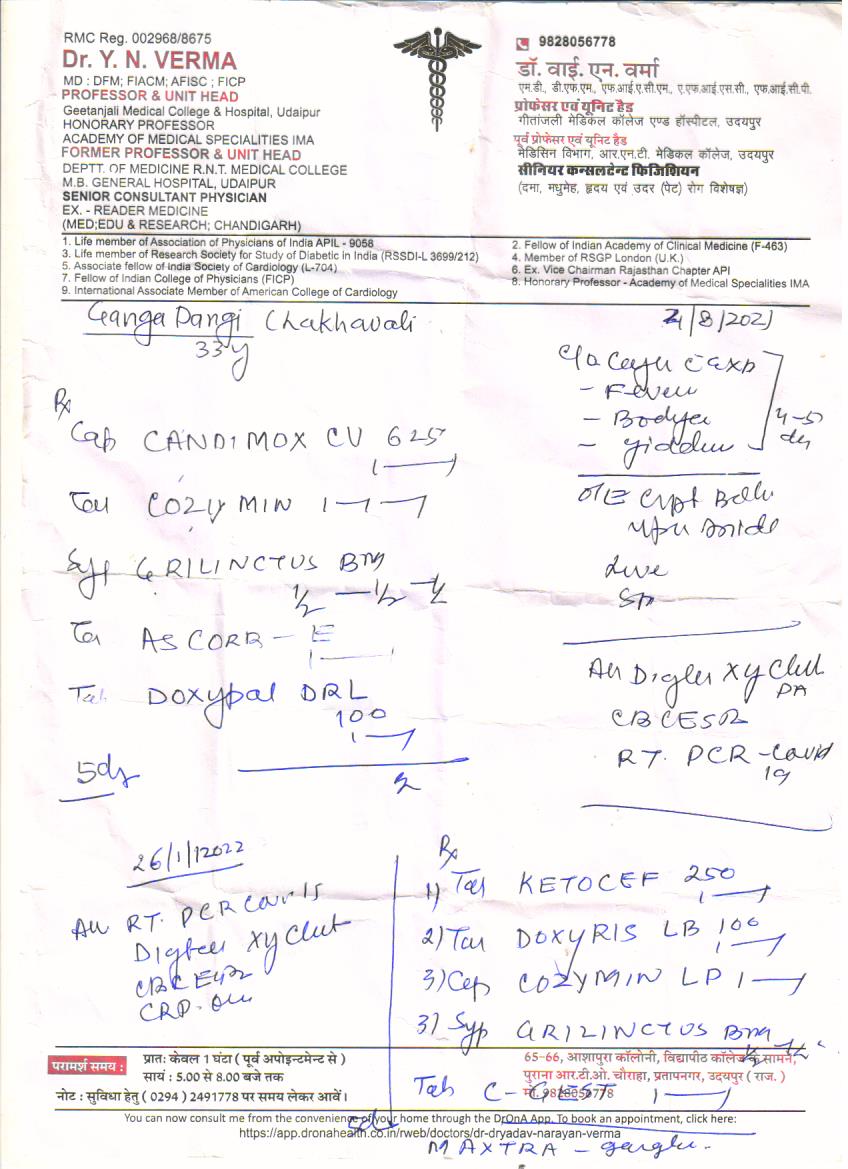 RMC Reg. 002968/8675
Dr. Y. N. VERMA
MD : DFM; FIACM; AFISC ; FICP
PROFESSOR & UNIT HEAD
Geetanjali Medical College & Hospital, Udaipur
HONORARY PROFESSOR
ACADEMY OF MEDICAL SPECIALITIES IMA
FORMER PROFESSOR & UNIT HEAD
DEPTT. OF MEDICINE R.N.T. MEDICAL COLLEGE
M.B. GENERAL HOSPITAL, UDAIPUR
SENIOR CONSULTANT PHYSICIAN
EX. - READER MEDICINE
(MED;EDU & RESEARCH; CHANDIGARH)
9828056778
डॉ. वाई. एन. वर्मा
एम.डी., डी.एफ.एम., एफ.आई.ए.सी.एम., ए.एफ.आई.एस.सी., एफ.आई.सी.पी.
प्रोफेसर एवं यूनिट हैड
गीतांजली मेडिकल कॉलेज एण्ड हॉस्पीटल, उदयपुर
पूर्व प्रोफेसर एवं यूनिट हैड
मेडिसिन विभाग, आर.एन.टी. मेडिकल कॉलेज, उदयपुर
सीनियर कन्सलटेन्ट फिजिशियन
(दमा, मधुमेह, हृदय एवं उदर (पेट) रोग विशेषज्ञ)
1. Life member of Association of Physicians of India APIL - 9058
3. Life member of Research Society for Study of Diabetic in India (RSSDI-L 3699/212)
5. Associate fellow of India Society of Cardiology (L-704)
7. Fellow of Indian College of Physicians (FICP)
9. International Associate Member of American College of Cardiology
2. Fellow of Indian Academy of Clinical Medicine (F-463)
4. Member of RSGP London (U.K.)
6. Ex. Vice Chairman Rajasthan Chapter API
8. Honorary Professor - Academy of Medical Specialities IMA
Ganga Dangi Chakhavali
33y
/8/2021
c/o
- Fever
4-5
O/E
RT. PCR - Covid
19
CBC ESR
PA
Rx
Cap CANDIMOX CV 625
Tab COZYMIN 1-1-1
Syp GRILINCTUS BM
1/2 - 1/2 - 1/2
ASCORB - E
Tab DOXYPAL DRL
100
5dy
26/1/2022
RT. PCR
CRP
Rx
1) Tab KETOCEF 250
2) Tab DOXYRIS LB 100
3) Cap COZYMIN LP
3) Syp GRILINCTUS BM
Tab
MAXTRA - gargle
परामर्श समय :
प्रातः केवल 1 घंटा ( पूर्व अपोइन्टमेन्ट से )
सायं : 5.00 से 8.00 बजे तक
नोट : सुविधा हेतु ( 0294 ) 2491778 पर समय लेकर आवें।
65-66, आशापुरा कॉलोनी, विद्यापीठ कॉलेज के सामने,
पुराना आर.टी.ओ. चौराहा, प्रतापनगर, उदयपुर ( राज. )
मो. 9828056778
You can now consult me from the convenience of your home through the DrOnA App. To book an appointment, click here:
https://app.dronahealth.co.in/rweb/doctors/dr-dryadav-narayan-verma